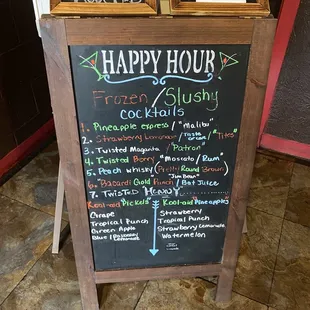 HAPPY HOUR
Frozen / Slushy
cocktails
1. Pineapple express / "Malibu"
2. Strawberry Lemonade / Taste of "Tito's"
3. Twisted Mango / "Patron"
4. Twisted Berry "Moscato / Rum
5. Peach whisky (Pretty Round Brown)
"Jim Beam"
6. Bacardi Gold Punch / Bat Juice
7. TwisTeD
Kool-aid Pickels Kool-aid Pineapples
Grape
Tropical Punch
Green Apple
Blue / Raspberry Lemonade
Strawberry
Tropical Punch
Strawberry Lemonade
Watermelon